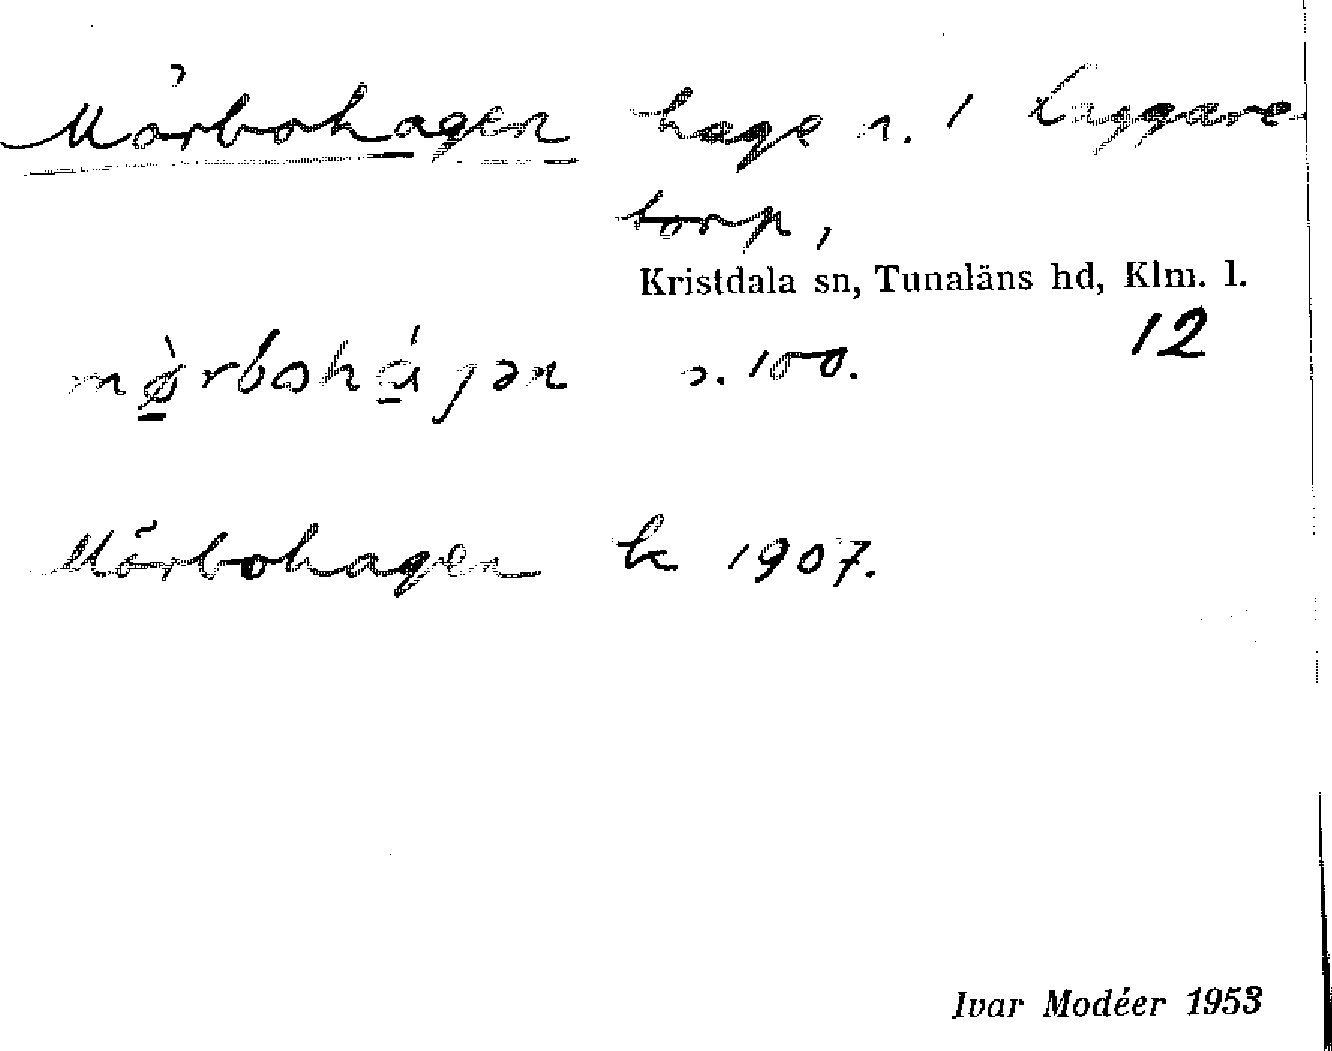 Mörbohagen hage n. 1 Laggare
torp,
Kristdala sn, Tunaläns hd, Klm. l.
12
mø̀rbohágən s. 100.
Mörbohagen k 1907.
Ivar Modéer 1953